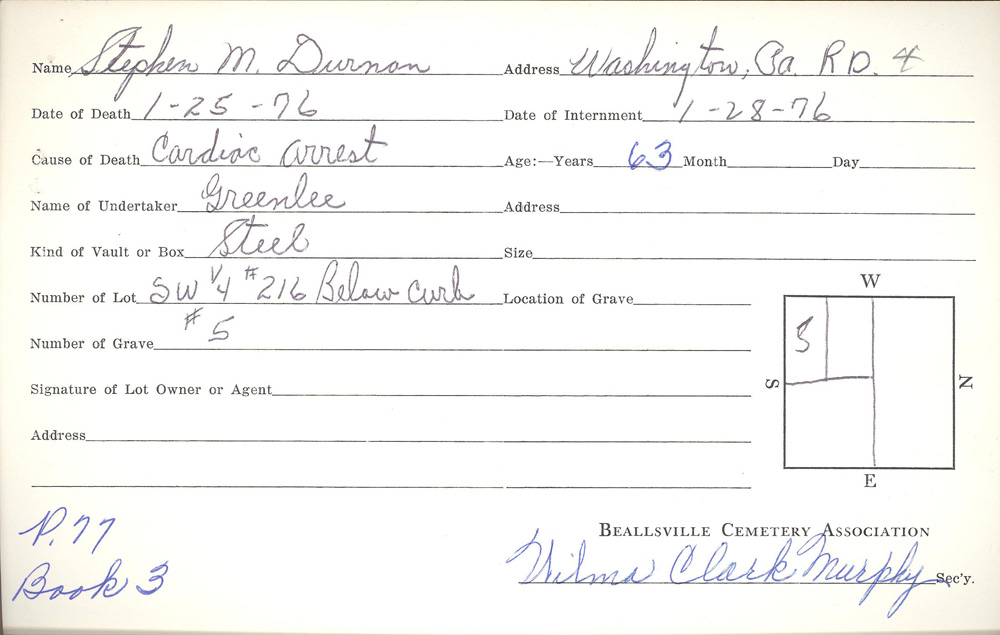 Name Stephen M. Durnan Address Washington, Pa. R D. 4
Date of Death 1-25-76 Date of Internment 1-28-76
Cause of Death Cardiac arrest Age:—Years 63 Month Day
Name of Undertaker Greenlee Address
Kind of Vault or Box Steel Size
Number of Lot SW 1/4 #216 Below Curb Location of Grave
Number of Grave #5
Signature of Lot Owner or Agent
Address
W
5
S
N
E
P. 77
Book 3
BEALLSVILLE CEMETERY ASSOCIATION
Wilma Clark Murphy Sec'y.